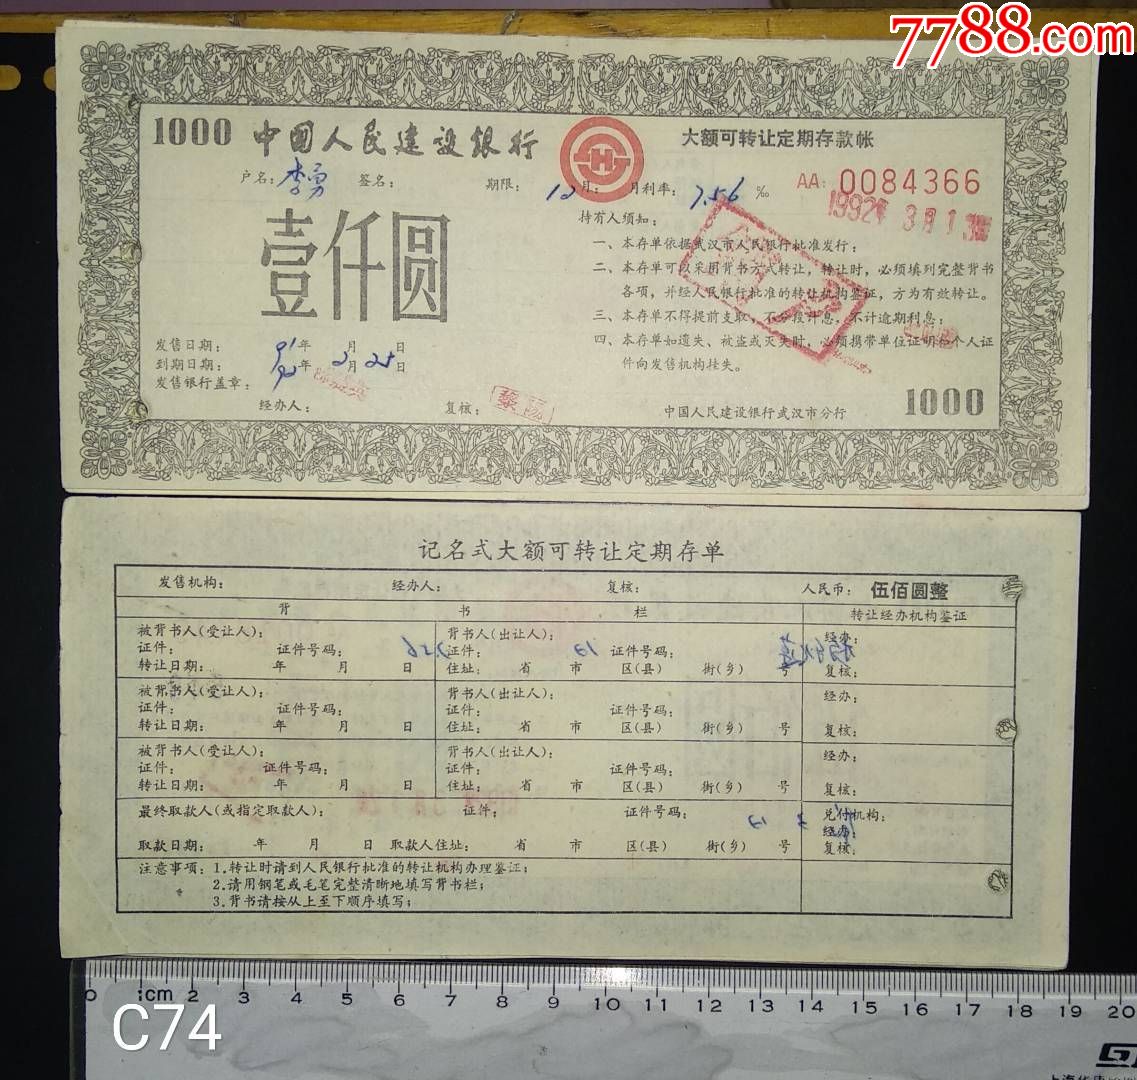 7788.com
1000 中国人民建设银行 大额可转让定期存款帐
户名：李勇 签名： 期限：12月； 月利率：7.56‰ AA：0084366
1992年3月13
壹仟圆
持有人须知：
一、本存单依据武汉市人民银行批准发行；
二、本存单可以采用背书方式转让，转让时，必须填列完整背书
各项，并经人民银行批准的转让机构鉴证，方为有效转让。
三、本存单不得提前支取，不分段计息，不计逾期利息；
四、本存单如遗失、被盗或灭失时，必须携带单位证明和个人证
件向发售机构挂失。
发售日期：91年 月 日
到期日期：92年2月25日
发售银行盖章：
经办人： 复核：
中国人民建设银行武汉市分行 1000
记名式大额可转让定期存单
发售机构： 经办人： 复核： 人民币：伍佰圆整
背 书 栏 转让经办机构鉴证
被背书人(受让人)； 背书人(出让人)； 经办：
证件； 证件号码； 证件； 证件号码；
转让日期： 年 月 日 住址； 省 市 区(县) 街(乡) 号 复核：
被背书人(受让人)； 背书人(出让人)； 经办：
证件； 证件号码； 证件； 证件号码；
转让日期： 年 月 日 住址； 省 市 区(县) 街(乡) 号 复核：
被背书人(受让人)； 背书人(出让人)； 经办：
证件； 证件号码； 证件； 证件号码；
转让日期： 年 月 日 住址； 省 市 区(县) 街(乡) 号 复核：
最终取款人(或指定取款人)； 证件； 证件号码； 兑付机构：
经办：
取款日期： 年 月 日 取款人住址； 省 市 区(县) 街(乡) 号 复核：
注意事项：1.转让时请到人民银行批准的转让机构办理鉴证；
2.请用钢笔或毛笔完整清晰地填写背书栏；
3.背书请按从上至下顺序填写；
0 1cm 2 3 4 5 6 7 8 9 10 11 12 13 14 15 16 17 18 19 20
C74